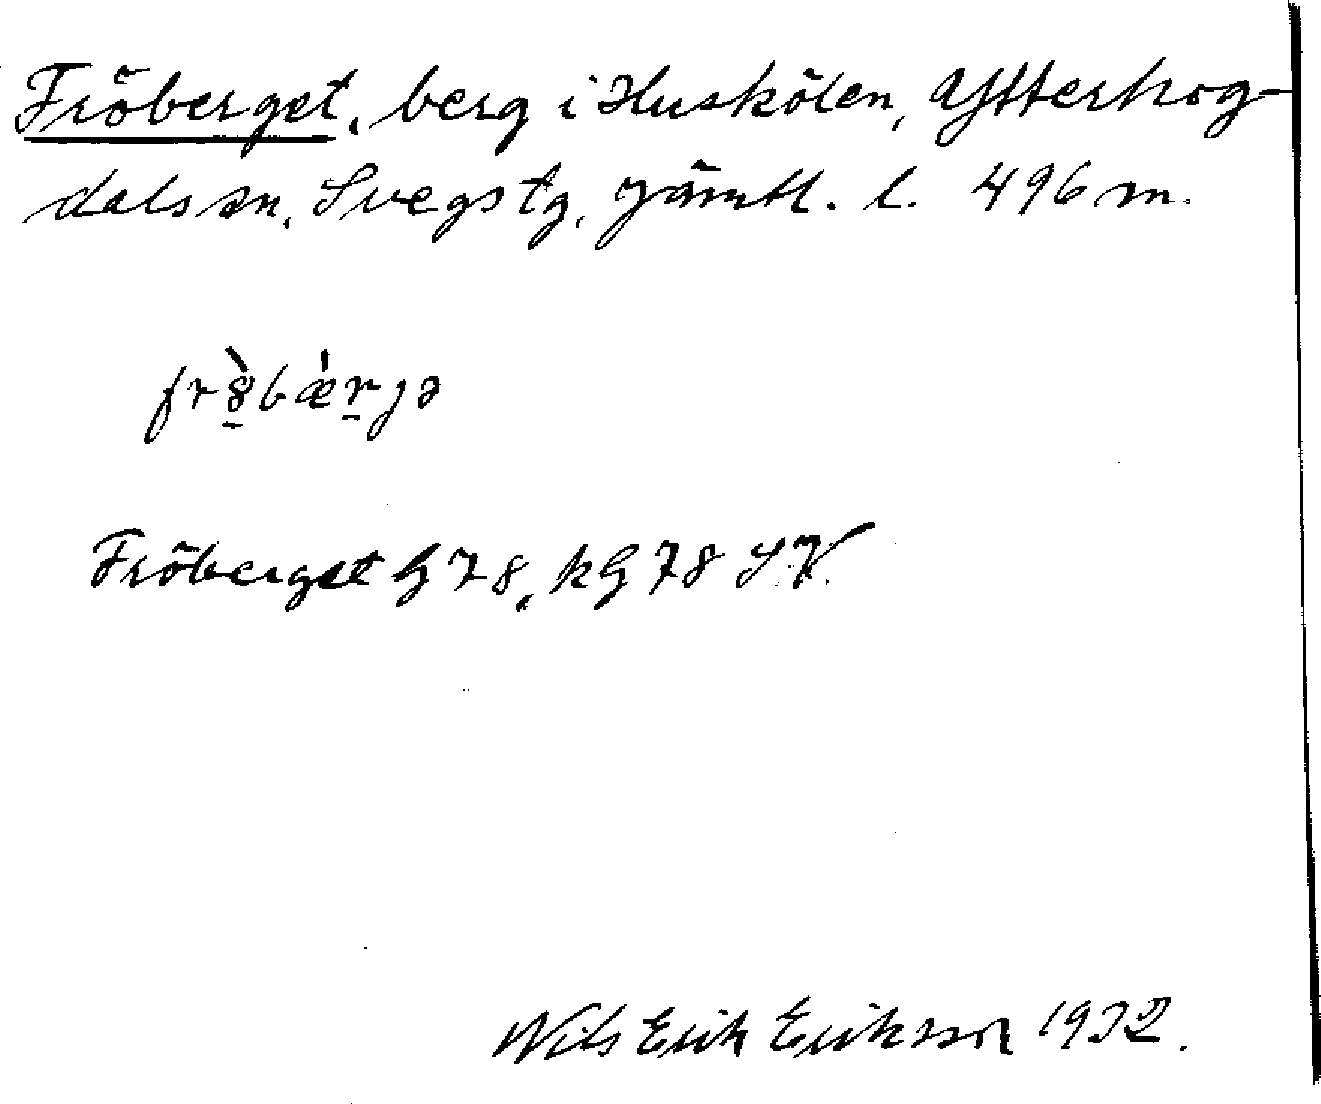 Fröberget, berg i Huskölen, Ytterhog-
dals sn, Svegs tg, Jämtl. l. 496 m.
frö̀bǽrjə
Fröberget G 78, kG 78 SV.
Nils Erik Eriksson 1932.